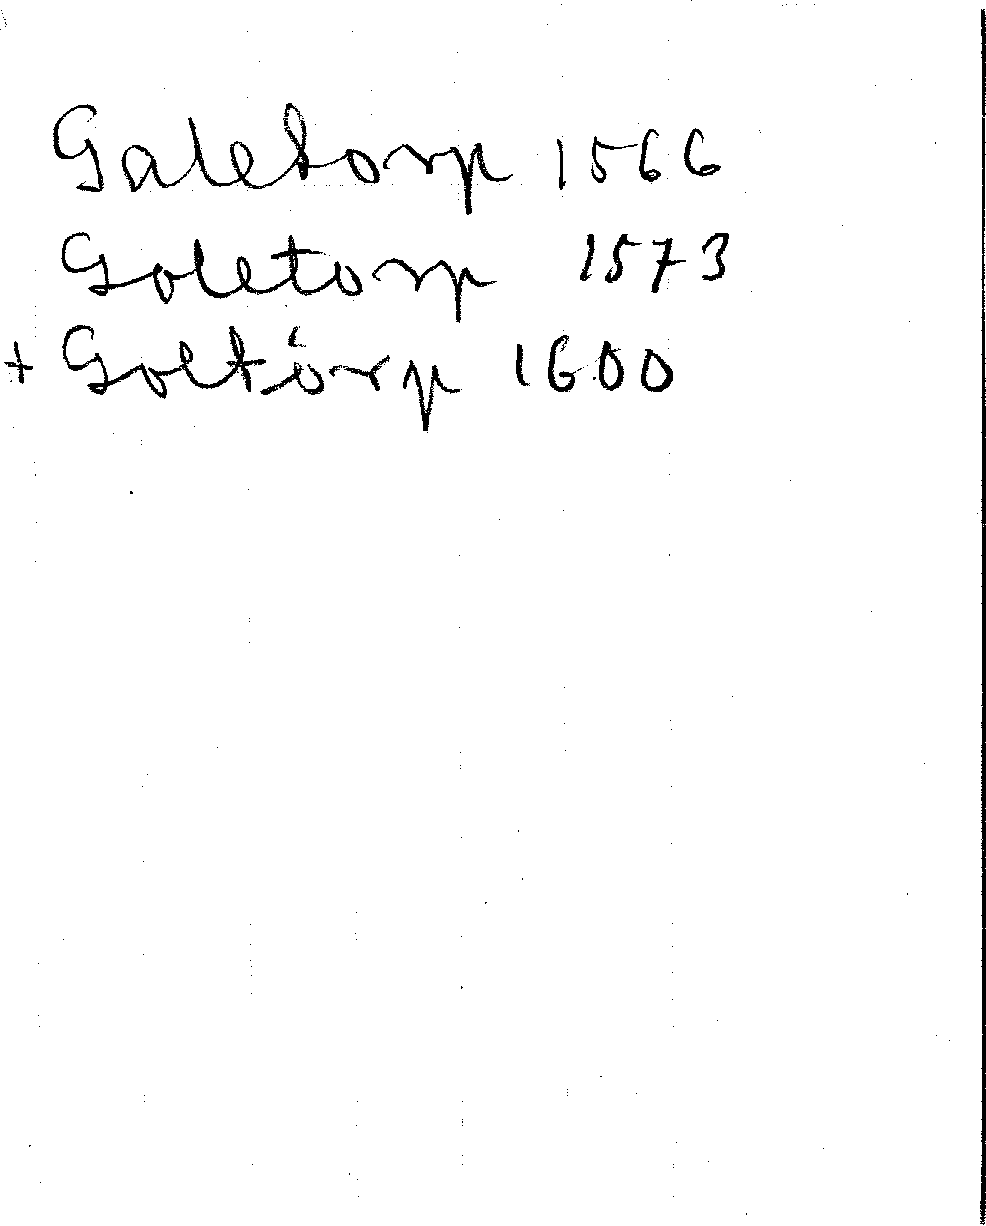 Galetorp 1566
Goletorp 1573
+ Goltörp 1600